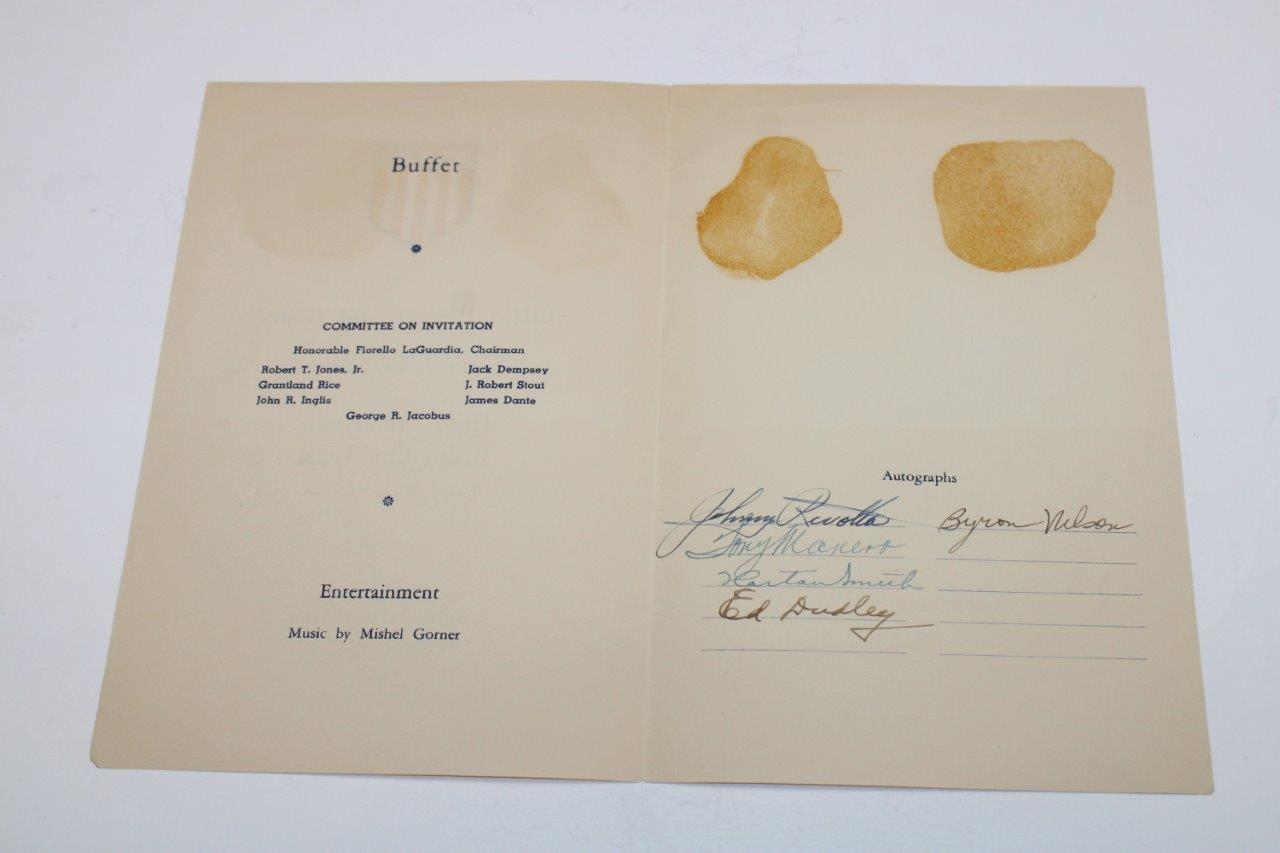 Buffet
COMMITTEE ON INVITATION
Honorable Fiorello LaGuardia, Chairman
Robert T. Jones, Jr. Jack Dempsey
Grantland Rice J. Robert Stout
John R. Inglis James Dante
George R. Jacobus
Entertainment
Music by Mishel Gorner
Autographs
Johnny Revolta Byron Nelson
Tony Manero
Horton Smith
Ed Dudley